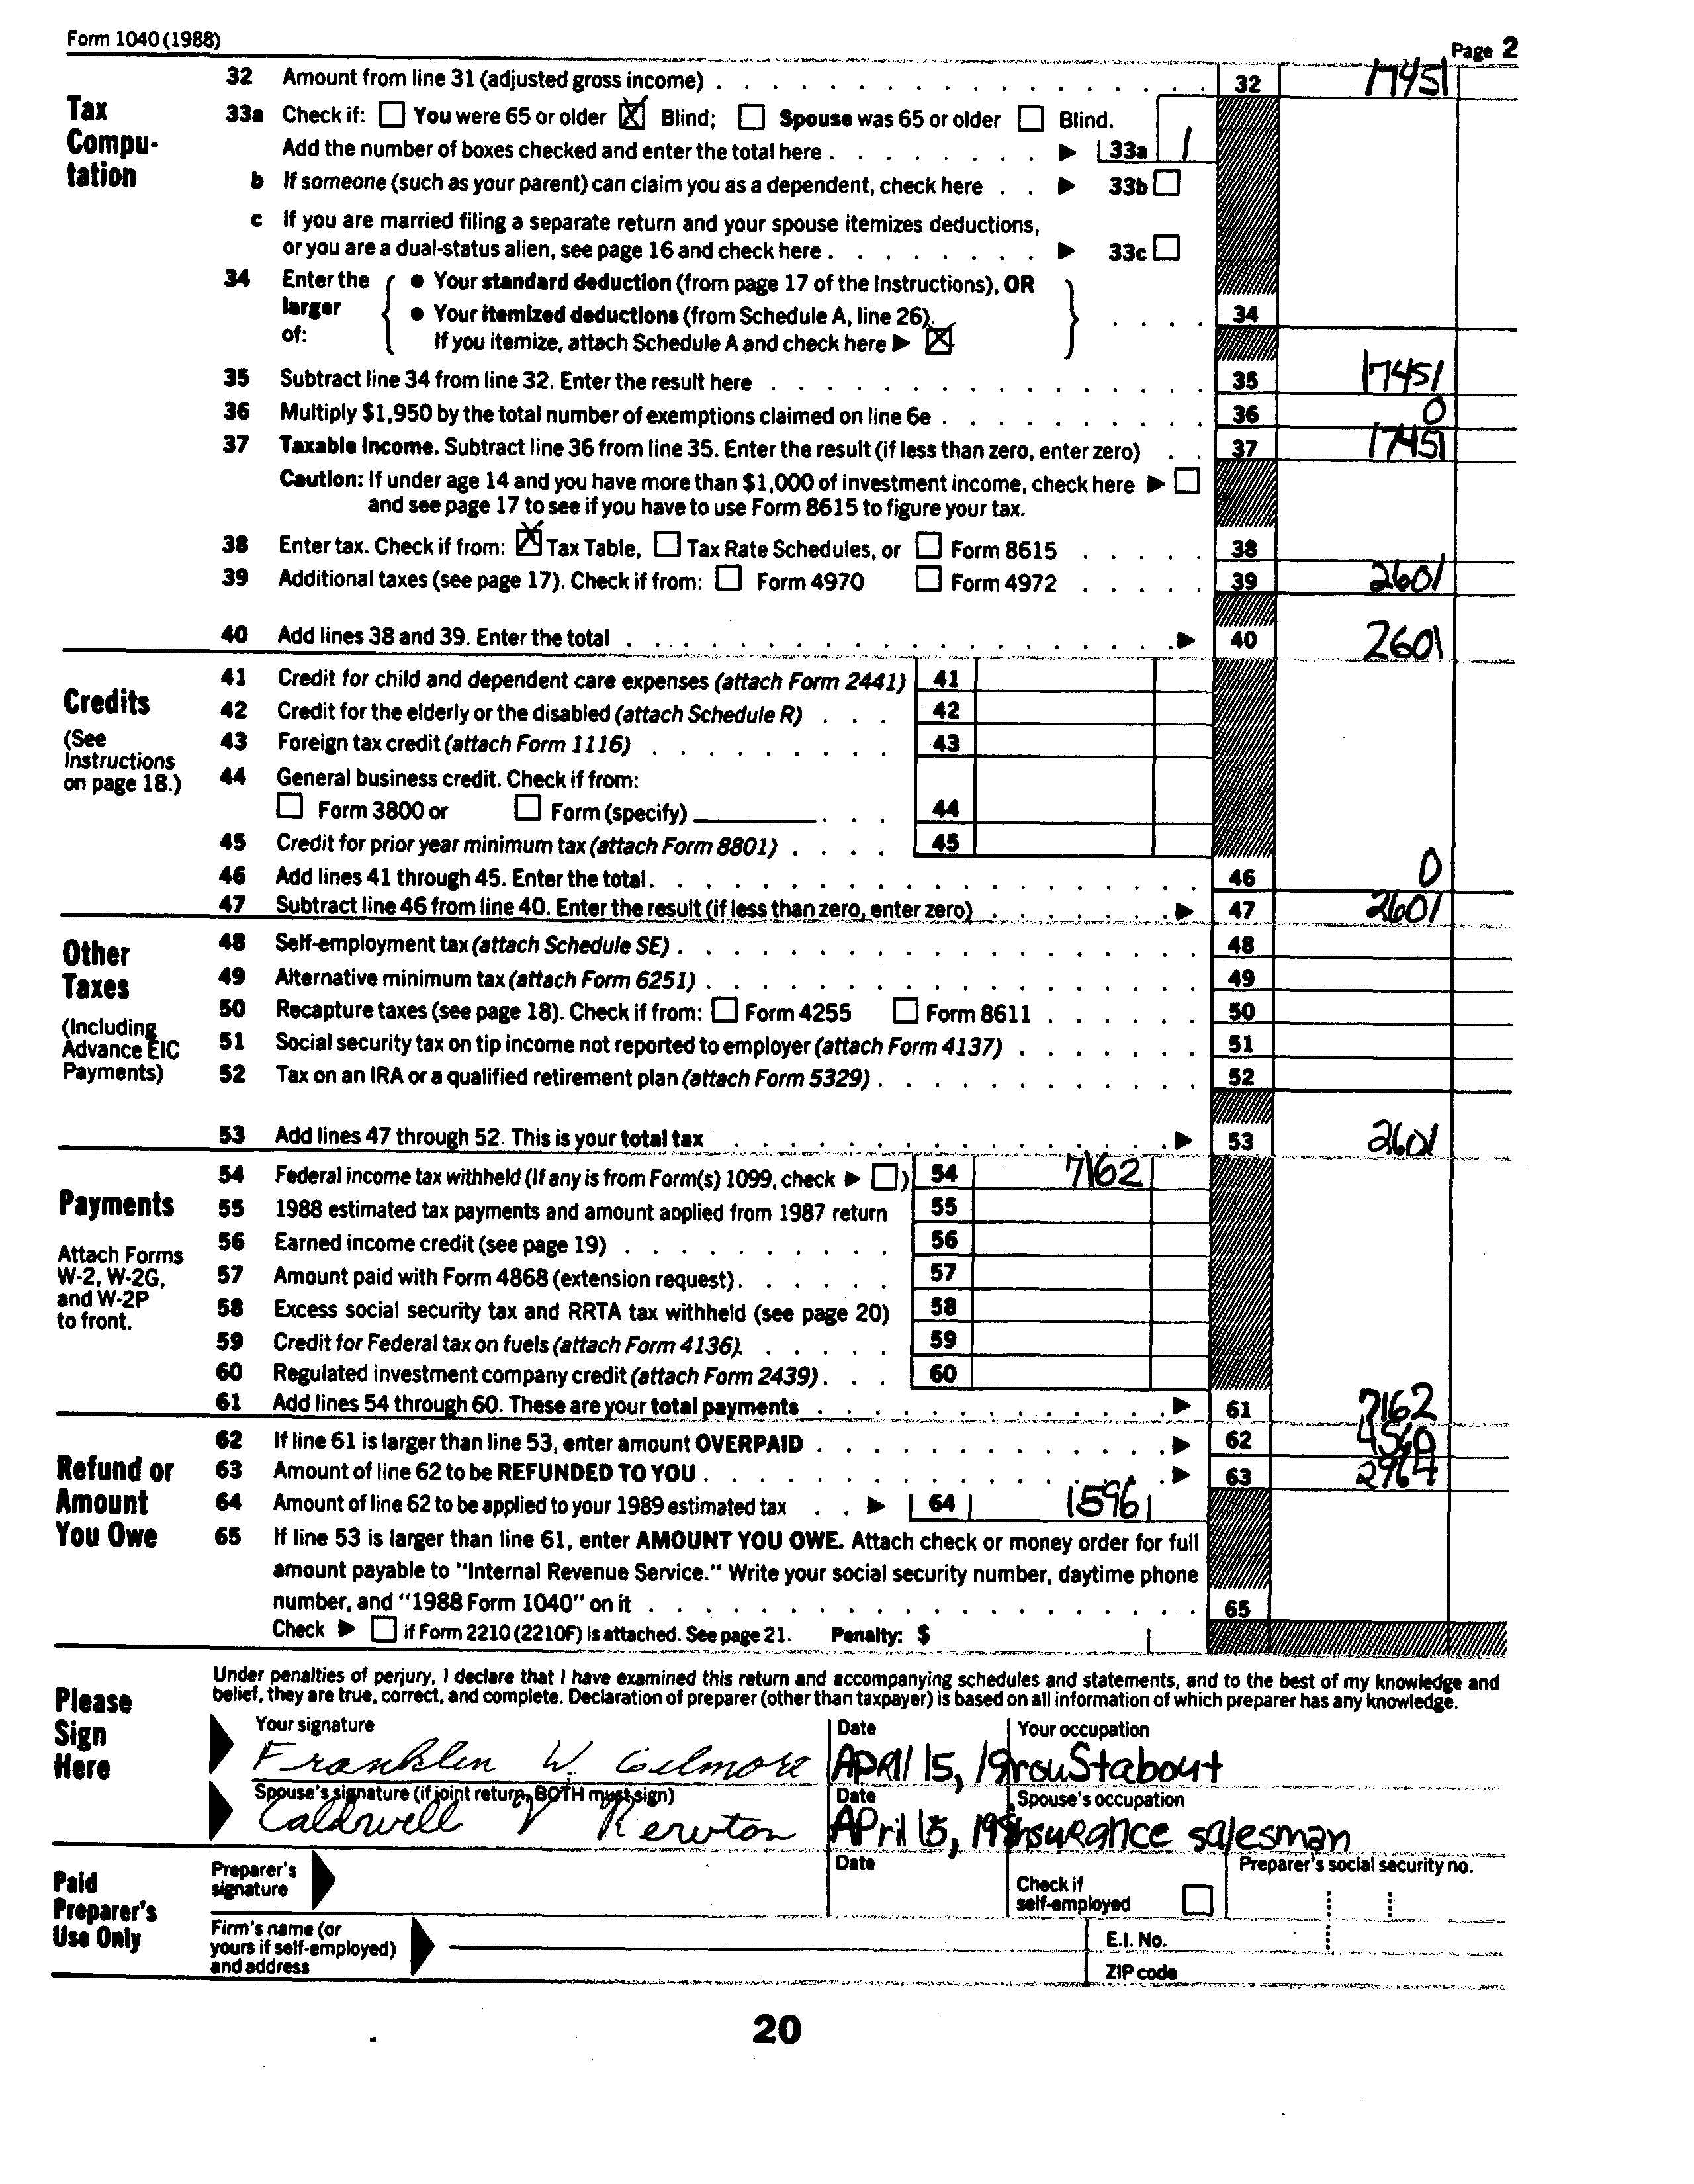 Form 1040 (1988)
Page 2
Tax Compu-tation
32 Amount from line 31 (adjusted gross income) 32 17451
33a Check if: You were 65 or older X Blind; Spouse was 65 or older Blind.
Add the number of boxes checked and enter the total here 33a 1
b If someone (such as your parent) can claim you as a dependent, check here 33b
c If you are married filing a separate return and your spouse itemizes deductions,
or you are a dual-status alien, see page 16 and check here 33c
34 Enter the larger of:
• Your standard deduction (from page 17 of the Instructions), OR
• Your itemized deductions (from Schedule A, line 26).
If you itemize, attach Schedule A and check here X
34
35 Subtract line 34 from line 32. Enter the result here 35 17451
36 Multiply $1,950 by the total number of exemptions claimed on line 6e 36 0
37 Taxable income. Subtract line 36 from line 35. Enter the result (if less than zero, enter zero) 37 17451
Caution: If under age 14 and you have more than $1,000 of investment income, check here
and see page 17 to see if you have to use Form 8615 to figure your tax.
38 Enter tax. Check if from: X Tax Table, Tax Rate Schedules, or Form 8615 38
39 Additional taxes (see page 17). Check if from: Form 4970 Form 4972 39 2601
40 Add lines 38 and 39. Enter the total 40 2601
Credits
(See Instructions on page 18.)
41 Credit for child and dependent care expenses (attach Form 2441) 41
42 Credit for the elderly or the disabled (attach Schedule R) 42
43 Foreign tax credit (attach Form 1116) 43
44 General business credit. Check if from:
Form 3800 or Form (specify) 44
45 Credit for prior year minimum tax (attach Form 8801) 45
46 Add lines 41 through 45. Enter the total. 46 0
47 Subtract line 46 from line 40. Enter the result (if less than zero, enter zero) 47 2601
Other Taxes
(Including Advance EIC Payments)
48 Self-employment tax (attach Schedule SE) 48
49 Alternative minimum tax (attach Form 6251) 49
50 Recapture taxes (see page 18). Check if from: Form 4255 Form 8611 50
51 Social security tax on tip income not reported to employer (attach Form 4137) 51
52 Tax on an IRA or a qualified retirement plan (attach Form 5329) 52
53 Add lines 47 through 52. This is your total tax 53 2601
Payments
Attach Forms W-2, W-2G, and W-2P to front.
54 Federal income tax withheld (If any is from Form(s) 1099, check ) 54 7162
55 1988 estimated tax payments and amount applied from 1987 return 55
56 Earned income credit (see page 19) 56
57 Amount paid with Form 4868 (extension request) 57
58 Excess social security tax and RRTA tax withheld (see page 20) 58
59 Credit for Federal tax on fuels (attach Form 4136). 59
60 Regulated investment company credit (attach Form 2439) 60
61 Add lines 54 through 60. These are your total payments 61 7162
Refund or Amount You Owe
62 If line 61 is larger than line 53, enter amount OVERPAID 62 4560
63 Amount of line 62 to be REFUNDED TO YOU 63 2964
64 Amount of line 62 to be applied to your 1989 estimated tax 64 1596
65 If line 53 is larger than line 61, enter AMOUNT YOU OWE. Attach check or money order for full
amount payable to "Internal Revenue Service." Write your social security number, daytime phone
number, and "1988 Form 1040" on it 65
Check if Form 2210 (2210F) is attached. See page 21. Penalty: $
Please Sign Here
Under penalties of perjury, I declare that I have examined this return and accompanying schedules and statements, and to the best of my knowledge and
belief, they are true, correct, and complete. Declaration of preparer (other than taxpayer) is based on all information of which preparer has any knowledge.
Your signature Date Your occupation
Franklin W. Gilmore APRil 15, 19 rouStabout
Spouse's signature (if joint return, BOTH must sign) Date Spouse's occupation
Caldwell V Newton APril 15, 19 insuRance salesman
Paid Preparer's Use Only
Preparer's signature Date Check if self-employed Preparer's social security no.
Firm's name (or yours if self-employed) and address
E.I. No.
ZIP code
20